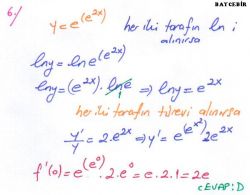 BAYCEBİR
6-/ y=e^(e^(2x)) her iki tarafın ln i alınırsa
lny=lne^(e^(2x))
lny=(e^(2x)).lne ⇒ lny=e^(2x)
her iki tarafın türevi alınırsa
y'/y=2.e^(2x) ⇒ y'=e^(e^(x^2))2e^(2x)
f'(0)=e^(e^0).2.e^0=e.2.1=2e
CEVAP:D